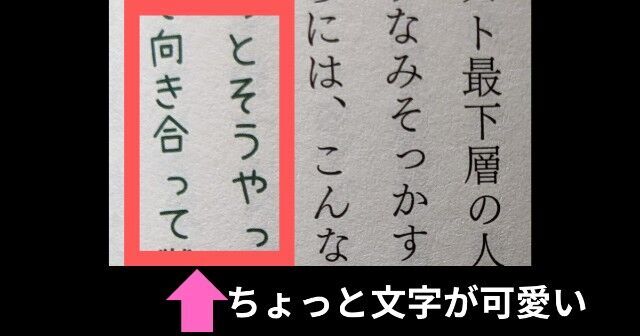 スト最下層の人
なみそっかす
には、こんな
っとそうやっ
向き合って
ちょっと文字が可愛い